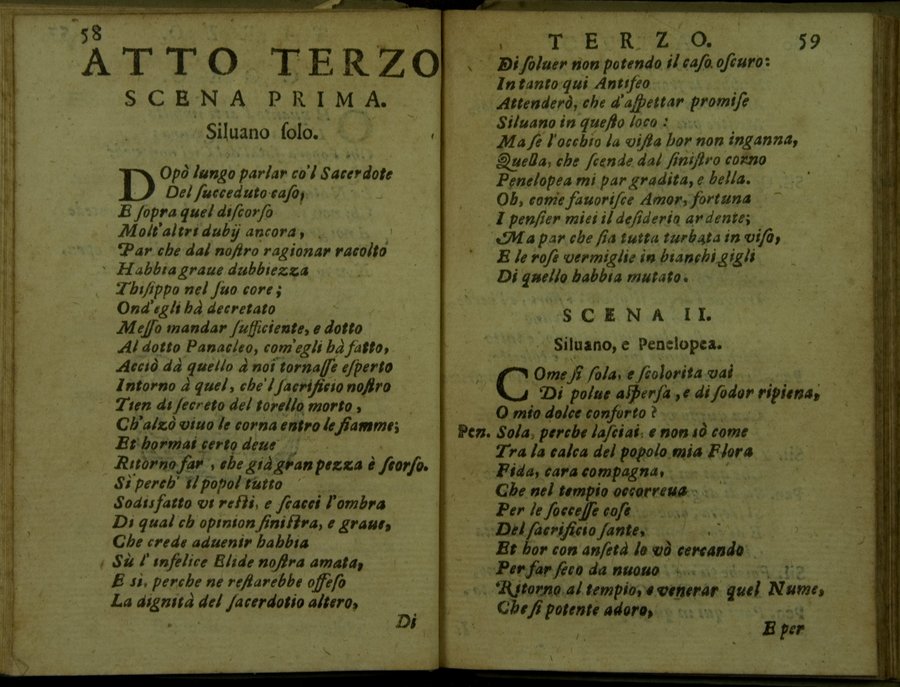 58
ATTO TERZO
SCENA PRIMA.
Siluano ſolo.
DOpò lungo parlar co'l Sacerdote
Del ſucceduto caſo,
E ſopra quel diſcorſo
Molt'altri dubij ancora,
Par che dal noſtro ragionar racolto
Habbia graue dubbiezza
Thiſippo nel ſuo core;
Ond'egli hà decretato
Meſſo mandar ſufficiente, e dotto
Al dotto Panacleo, com'egli hà fatto,
Acciò dà quello à noi tornaſſe eſperto
Intorno à quel, che'l ſacrificio noſtro
Tien di ſecreto del torello morto,
Ch'alzò viuo le corna entro le fiamme;
Et hormai certo deue
Ritorno far, che già gran pezza è ſcorſo.
Sì perch' il popol tutto
Sodisfatto vi reſti, e ſcacci l'ombra
Di qual ch opinion ſiniſtra, e graue,
Che crede aduenir habbia
Sù l' infelice Elide noſtra amata,
E sì, perche ne reſtarebbe offeſo
La dignità del ſacerdotio altero,
Di
TERZO. 59
Di ſoluer non potendo il caſo oſcuro:
In tanto qui Antifeo
Attenderò, che d'aſpettar promiſe
Siluano in queſto loco:
Ma ſe l'occhio la viſta hor non inganna,
Quella, che ſcende dal ſiniſtro corno
Penelopea mi par gradita, e bella.
Oh, come fauoriſce Amor, fortuna
I penſier miei il deſiderio ardente;
Ma par che ſia tutta turbata in viſo,
E le roſe vermiglie in bianchi gigli
Di quello habbia mutato.
SCENA II.
Siluano, e Penelopea.
COme ſi ſola, e ſcolorita vai
Di polue aſperſa, e di ſodor ripiena,
O mio dolce conforto?
Pen. Sola, perche laſciai, e non sò come
Tra la calca del popolo mia Flora
Fida, cara compagna,
Che nel tempio occorreua
Per le ſocceſſe coſe
Del ſacrificio ſante,
Et hor con anſetà lo vò cercando
Per far ſeco da nuouo
Ritorno al tempio, e venerar quel Nume,
Che ſi potente adoro,
E per